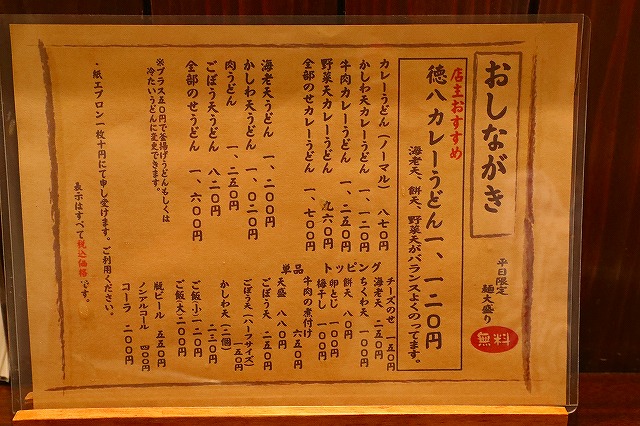 おしながき
平日限定
麺大盛り
無料
店主おすすめ
徳八カレーうどん 一、一二〇円
海老天、餅天、野菜天がバランスよくのってます。
カレーうどん(ノーマル) 八七〇円
かしわ天カレーうどん 一、一二〇円
牛肉カレーうどん 一、二五〇円
野菜天カレーうどん 九六〇円
全部のせカレーうどん 一、七〇〇円
海老天うどん 一、二〇〇円
かしわ天うどん 一、〇二〇円
肉うどん 一、二五〇円
ごぼう天うどん 八二〇円
全部のせうどん 一、六〇〇円
※プラス五〇円で釜揚げうどんもしくは
冷たいうどんに変更できます。
・紙エプロン一枚十円にて申し受けます。ご利用ください。
表示はすべて税込価格です。
トッピング
チーズのせ 一五〇円
海老天 二五〇円
ちくわ天 一〇〇円
餅天 八〇円
卵とじ 一〇〇円
梅干し 一〇〇円
牛肉の煮付け 六五〇円
単品
天盛 八八〇円
ごぼう天 二五〇円
ごぼう天(ハーフサイズ) 一五〇円
かしわ天(二個) 二三〇円
ご飯・小 一二〇円
ご飯・大 二〇〇円
瓶ビール 五五〇円
ノンアルコール 四〇〇円
コーラ 二〇〇円